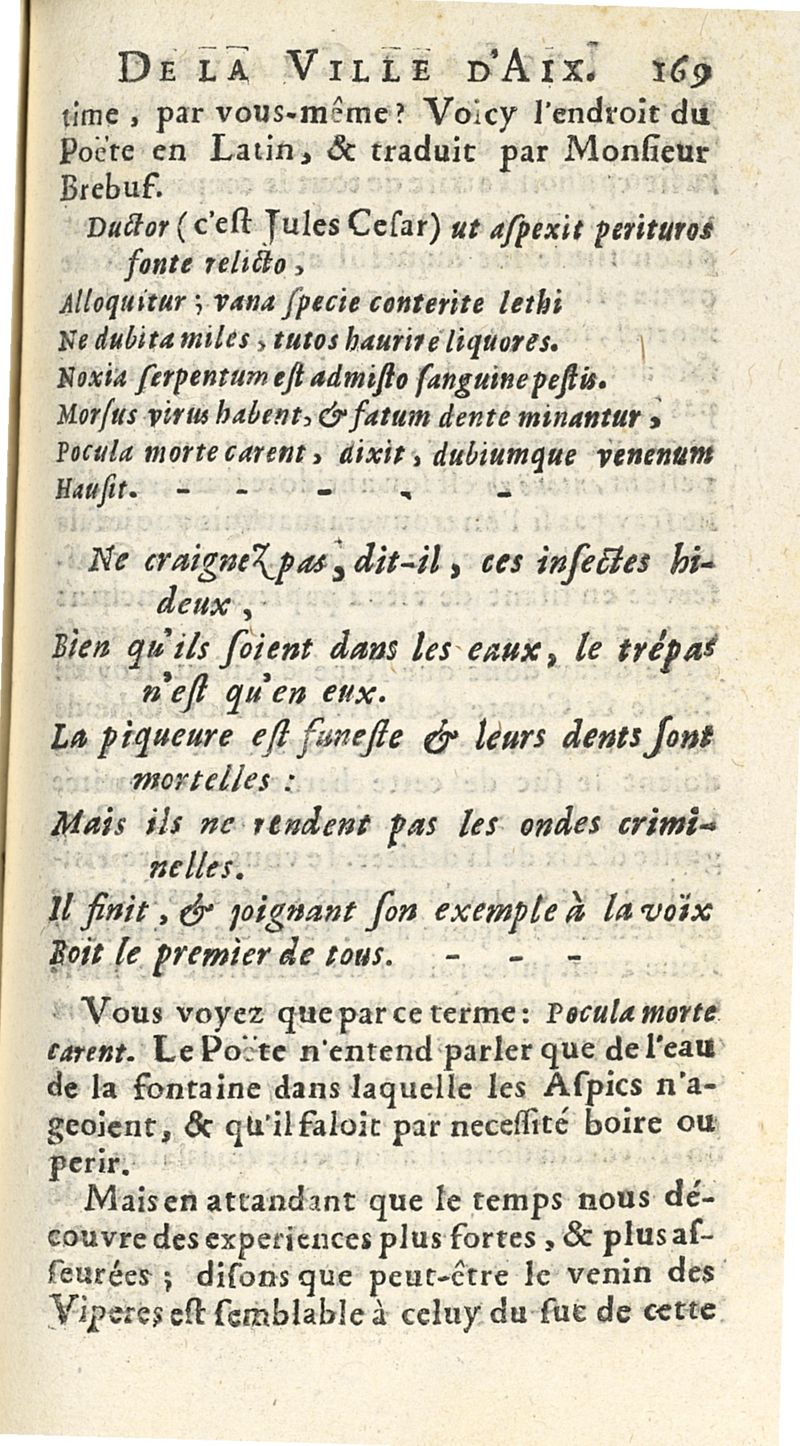 DE LA VILLE D'AIX. 169
time, par vous-même? Voicy l'endroit du
Poëte en Latin, & traduit par Monſieur
Brebuf.
Ductor (c'eſt Jules Ceſar) ut aſpexit perituros
fonte relicto,
Alloquitur; vana ſpecie conterite lethi
Ne dubita miles, tutos haurire liquores.
Noxia ſerpentum eſt admiſto ſanguine peſtis.
Morſus virus habent, & fatum dente minantur,
Pocula morte carent, dixit, dubiumque venenum
Hauſit. - - - - -
Ne craignez pas, dit-il, ces inſectes hi-
deux,
Bien qu'ils ſoient dans les eaux, le trépas
n'eſt qu'en eux.
La piqueure eſt funeſte & leurs dents ſont
mortelles :
Mais ils ne rendent pas les ondes crimi-
nelles.
Il finit, & joignant ſon exemple à la voix
Boit le premier de tous. - - -
Vous voyez que par ce terme: Pocula morte
carent. Le Poëte n'entend parler que de l'eau
de la fontaine dans laquelle les Aſpics n'a-
geoient, & qu'il faloit par neceſſité boire ou
perir.
Mais en attandant que le temps nous dé-
couvre des experiences plus fortes, & plus aſ-
ſeurées; diſons que peut-être le venin des
Viperes eſt ſemblable à celuy du ſuc de cette